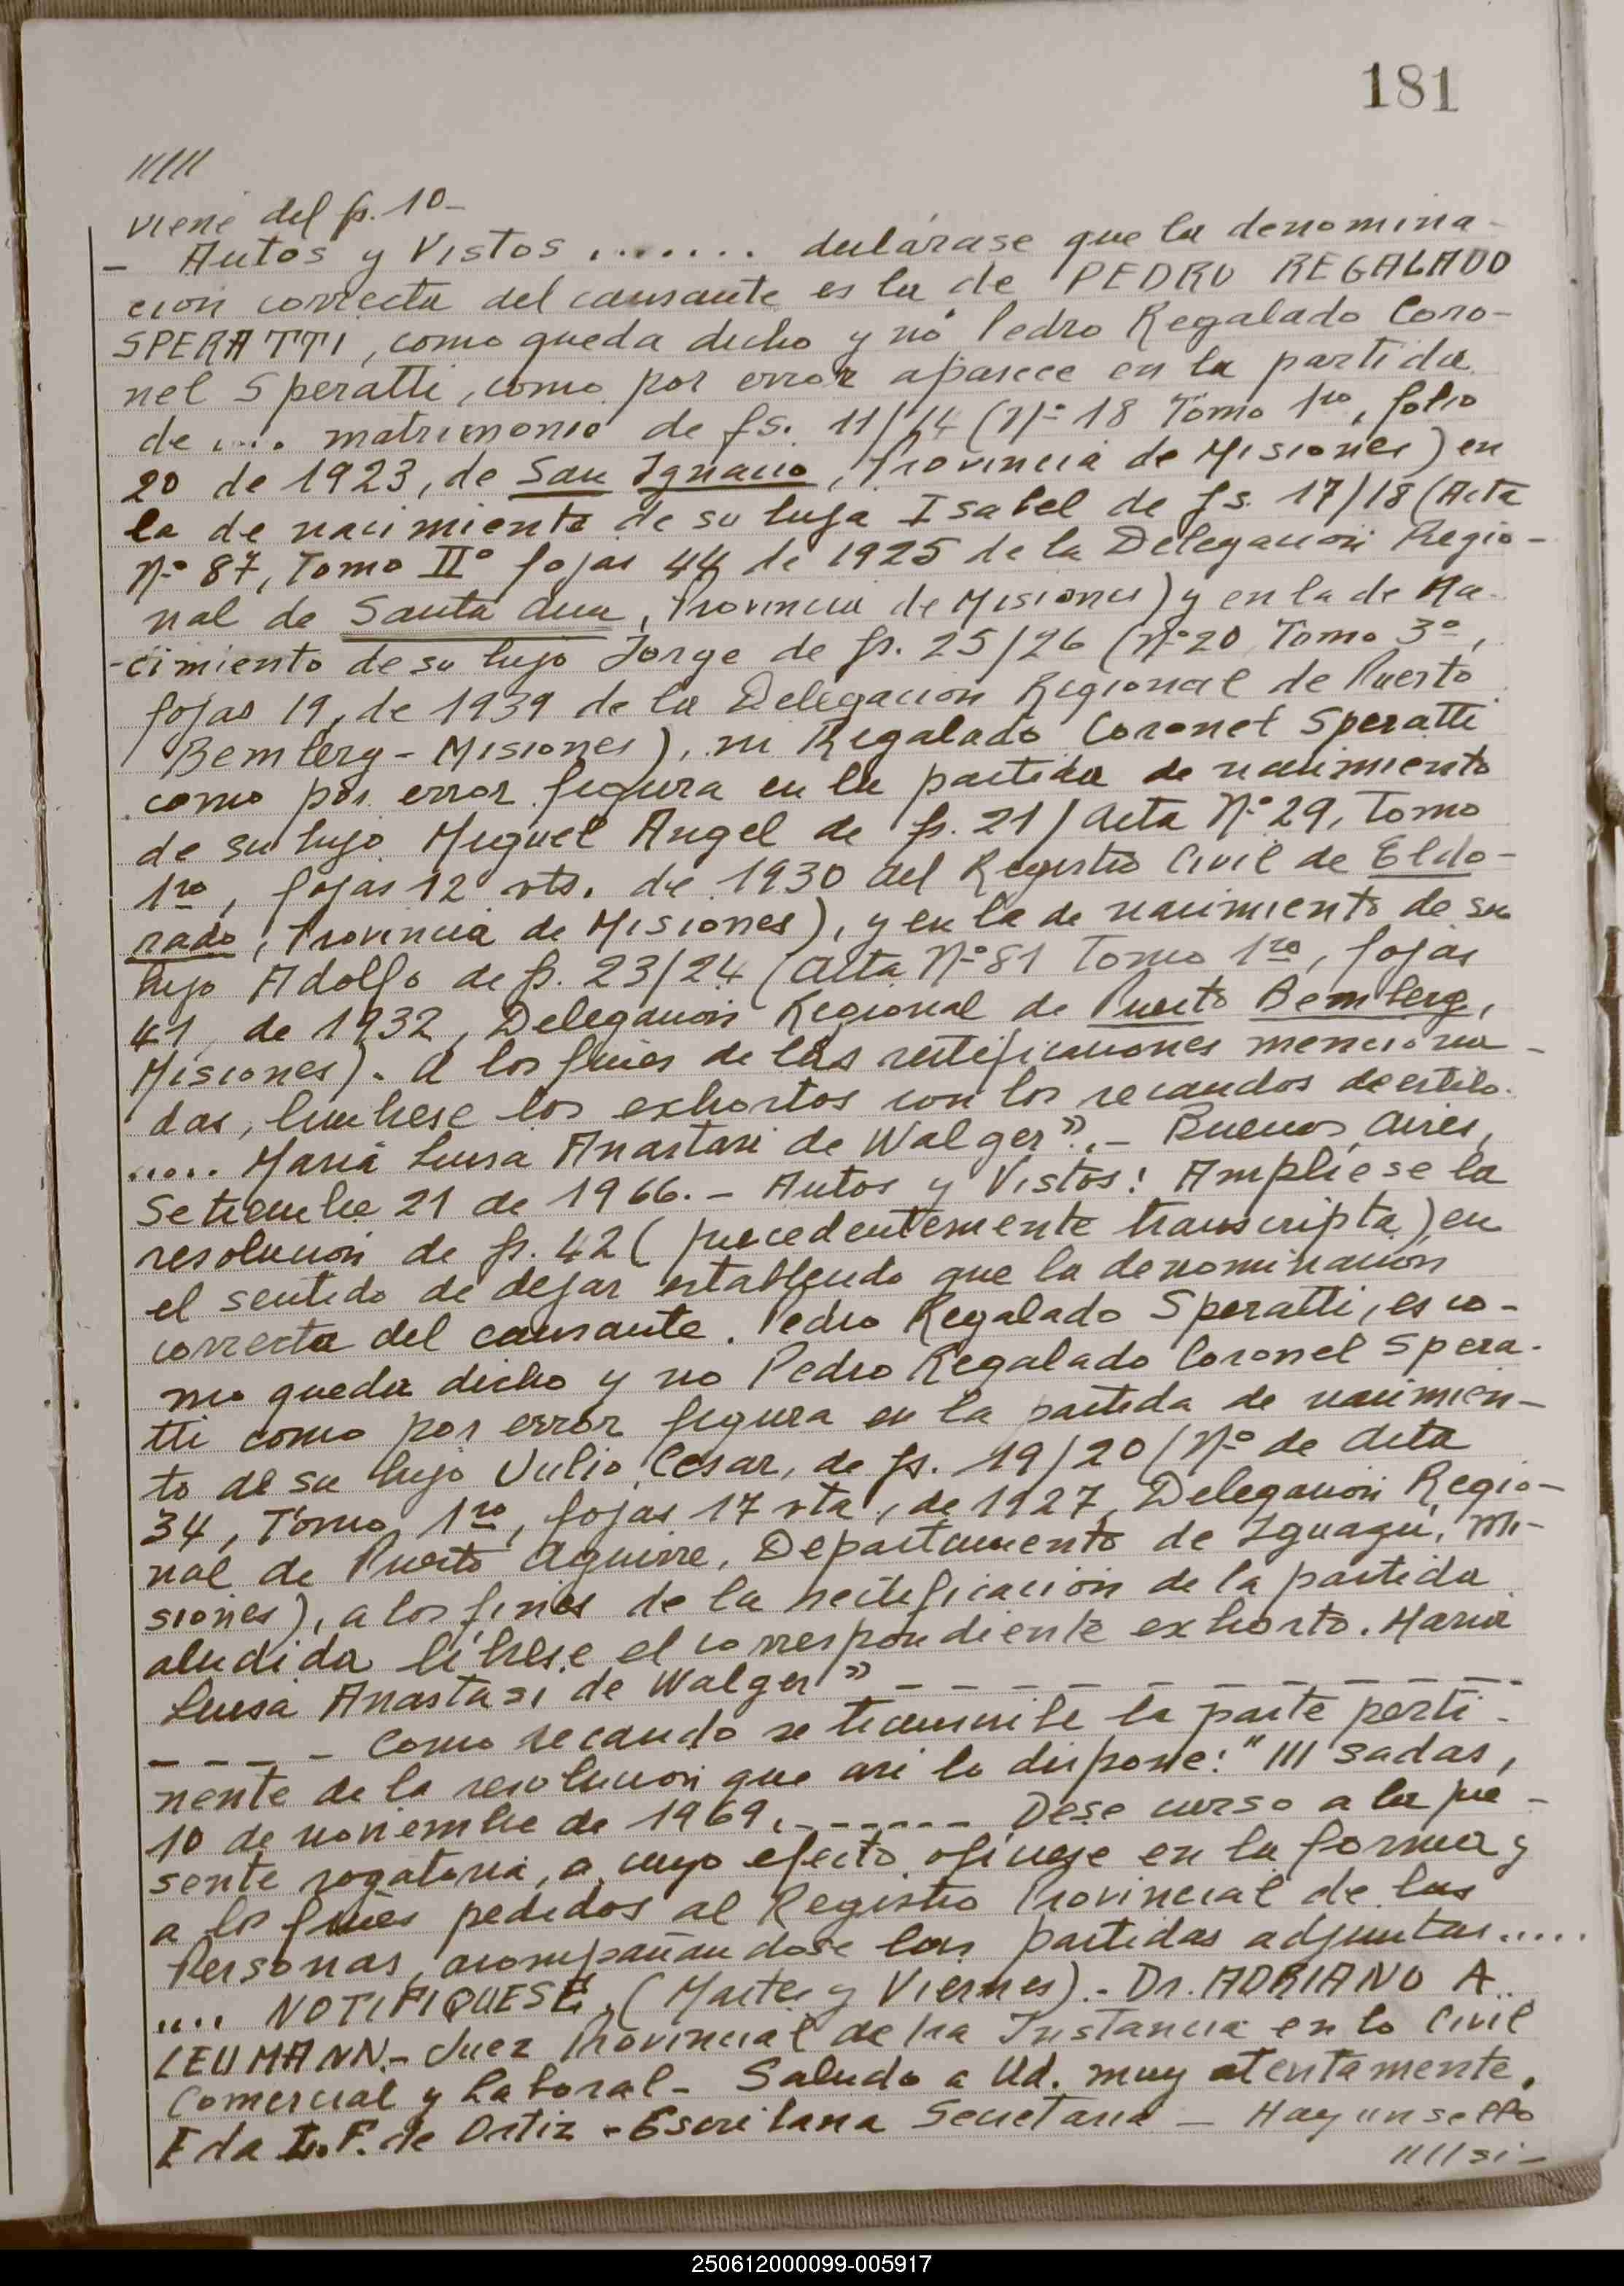 181
////
viene del fs. 10-
- Autos y Vistos ....... declárase que la denomina-
cion correcta del causante es la de PEDRO REGALADO
SPERATTI, como queda dicho y no Pedro Regalado Coro-
nel Speratti, como por error aparece en la partida
de .... matrimonio de fs. 11/14 (Nº 18 Tomo 1ro, folio
20 de 1923, de San Ignacio, Provincia de Misiones) en
la de nacimiento de su hija Isabel de fs. 17/18 (Acta
Nº 87, Tomo IIº fojas 44 de 1925 de la Delegacion Regio-
nal de Santa Ana, Provincia de Misiones) y en la de Na-
-cimiento de su hijo Jorge de fs. 25/26 (Nº 20 Tomo 3º,
fojas 19, de 1939 de la Delegacion Regional de Puerto
Bemberg - Misiones), ni Regalado Coronel Speratti
como por error figura en la partida de nacimiento
de su hijo Miguel Angel de fs. 21/ Acta Nº 29, Tomo
1ro, fojas 12 vta. de 1930 del Registro Civil de Eldo-
rado, Provincia de Misiones), y en la de nacimiento de su
hijo Adolfo de fs. 23/24 (Acta Nº 81 Tomo 1ro, fojas
41, de 1932, Delegacion Regional de Puerto Bemberg,
Misiones). A los fines de las rectificaciones menciona-
das, librese los exhortos con los recaudos de estilo.
..... Maria Luisa Anastasi de Walger".- Buenos Aires,
Setiembre 21 de 1966.- Autos y Vistos: Ampliese la
resolucion de fs. 42 (precedentemente transcripta) en
el sentido de dejar establecido que la denominacion
correcta del causante. Pedro Regalado Speratti, es co-
mo queda dicho y no Pedro Regalado Coronel Spera-
tti como por error figura en la partida de nacimien-
to de su hijo Julio Cesar, de fs. 19/20 (Nº de Acta
34, Tomo 1ro, fojas 17 vta, de 1927, Delegacion Regio-
nal de Puerto Aguirre, Departamento de Iguazú, Mi-
siones), a los fines de la rectificación de la partida
aludida líbrese el correspondiente exhorto. Maria
Luisa Anastasi de Walger" - - - - - - - - -
- - - - Como recaudo se transcribe la parte perti-
nente de la resolucion que asi lo dispone: "///sadas,
10 de noviembre de 1969.------ Dese curso a la pre-
sente rogatoria, a cuyo efecto ofíciese en la forma y
a los fines pedidos al Registro Provincial de las
Personas, acompañandose las partidas adjuntas.....
.... NOTIFIQUESE. (Martes y Viernes).- Dr. ADRIANO A.
LEUMANN.- Juez Provincial de 1ra Instancia en lo Civil
Comercial y Laboral- Saludo a Ud. muy atentamente.
Eda L. F. de Ortiz - Escribana Secretaria - Hay un sello
////si-
250612000099-005917